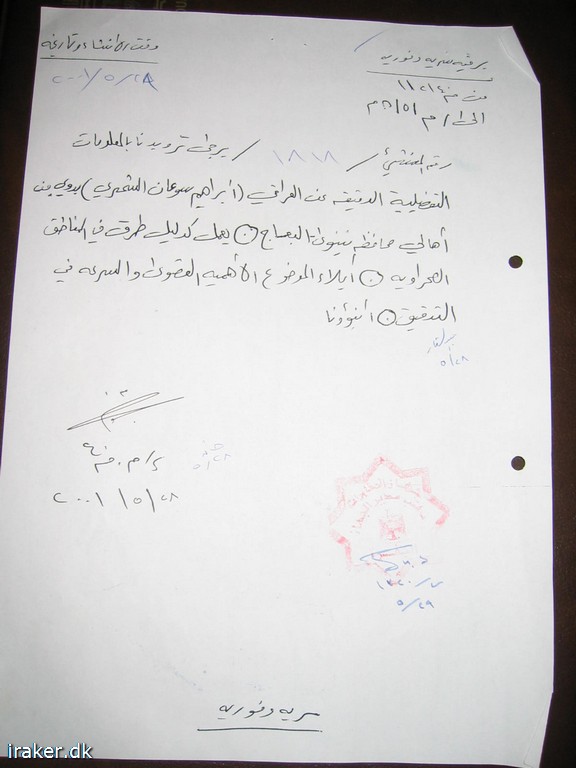 برقيه سريه وفوريه
وقت الانشاء وتاريخه
٢٠٠١/٥/٢٨
من م٤
الى/ م
رقم المنشئ/ ١٨١٨ / يرجى تزويدنا بالمعلومات
التفصيلية الدقيقه عن العراقي (ابراهيم سرحان الشمري) بدوي من
أهالي محافظه نينوى البعاج ⊙ يعمل كدليل طرق في المناطق
الصحراويه ⊙ أيلاء الموضوع الأهميه القصوى والسرعه في
التدقيق ⊙ أنبؤونا
٥/٢٨
٥/٢٨
٢٠٠١/٥/٢٨
٥/٢٩
سريه وفوريه
iraker.dk